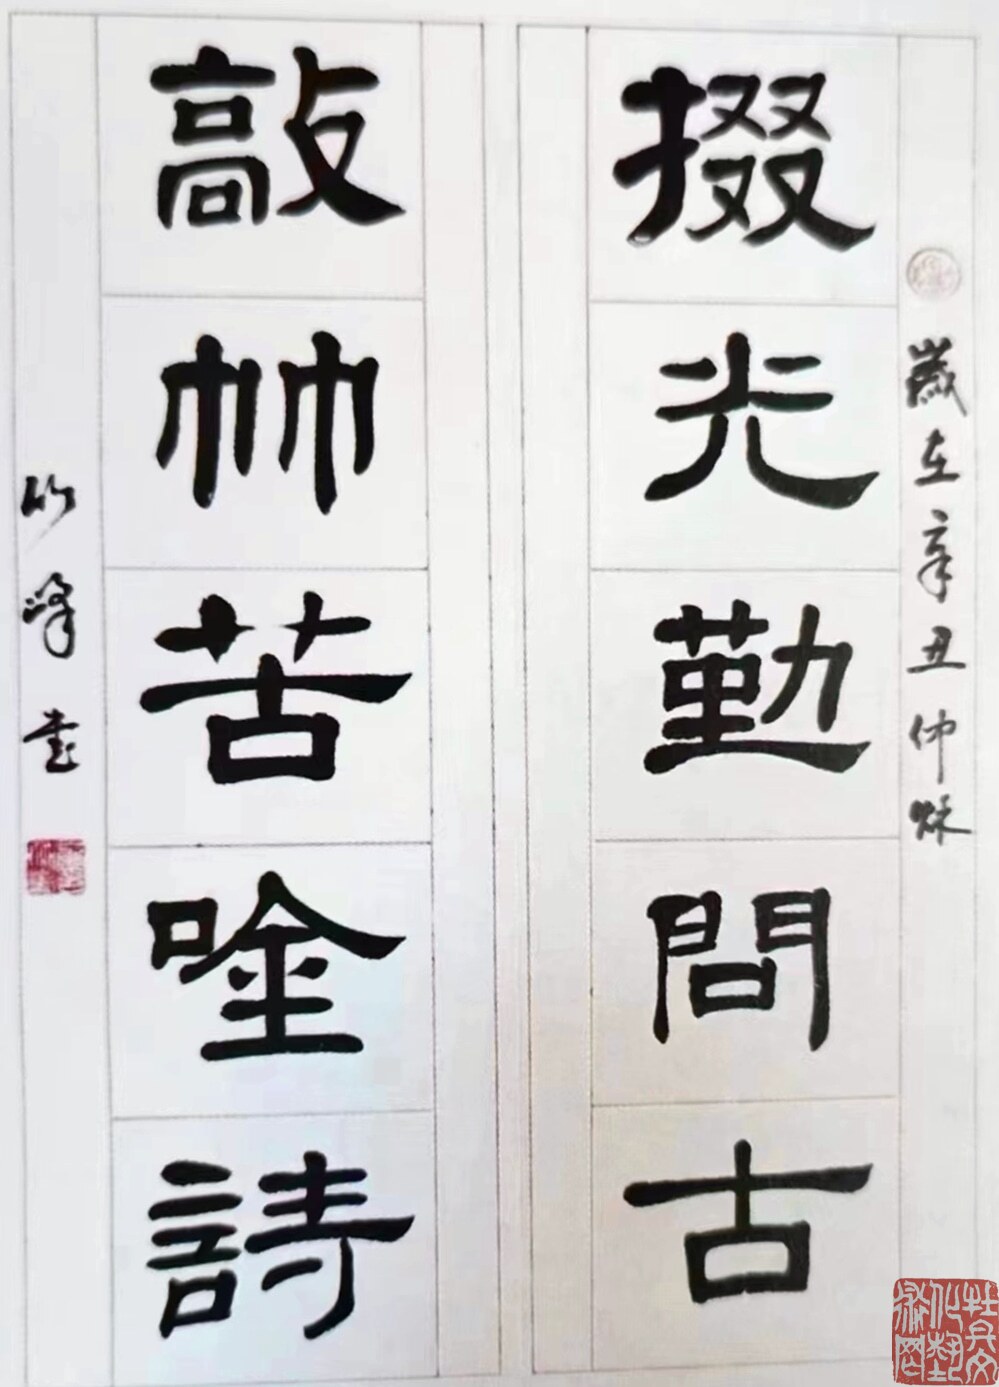 歲在辛丑仲秌
掇光勤問古
敲竹苦唫詩
竹峰書